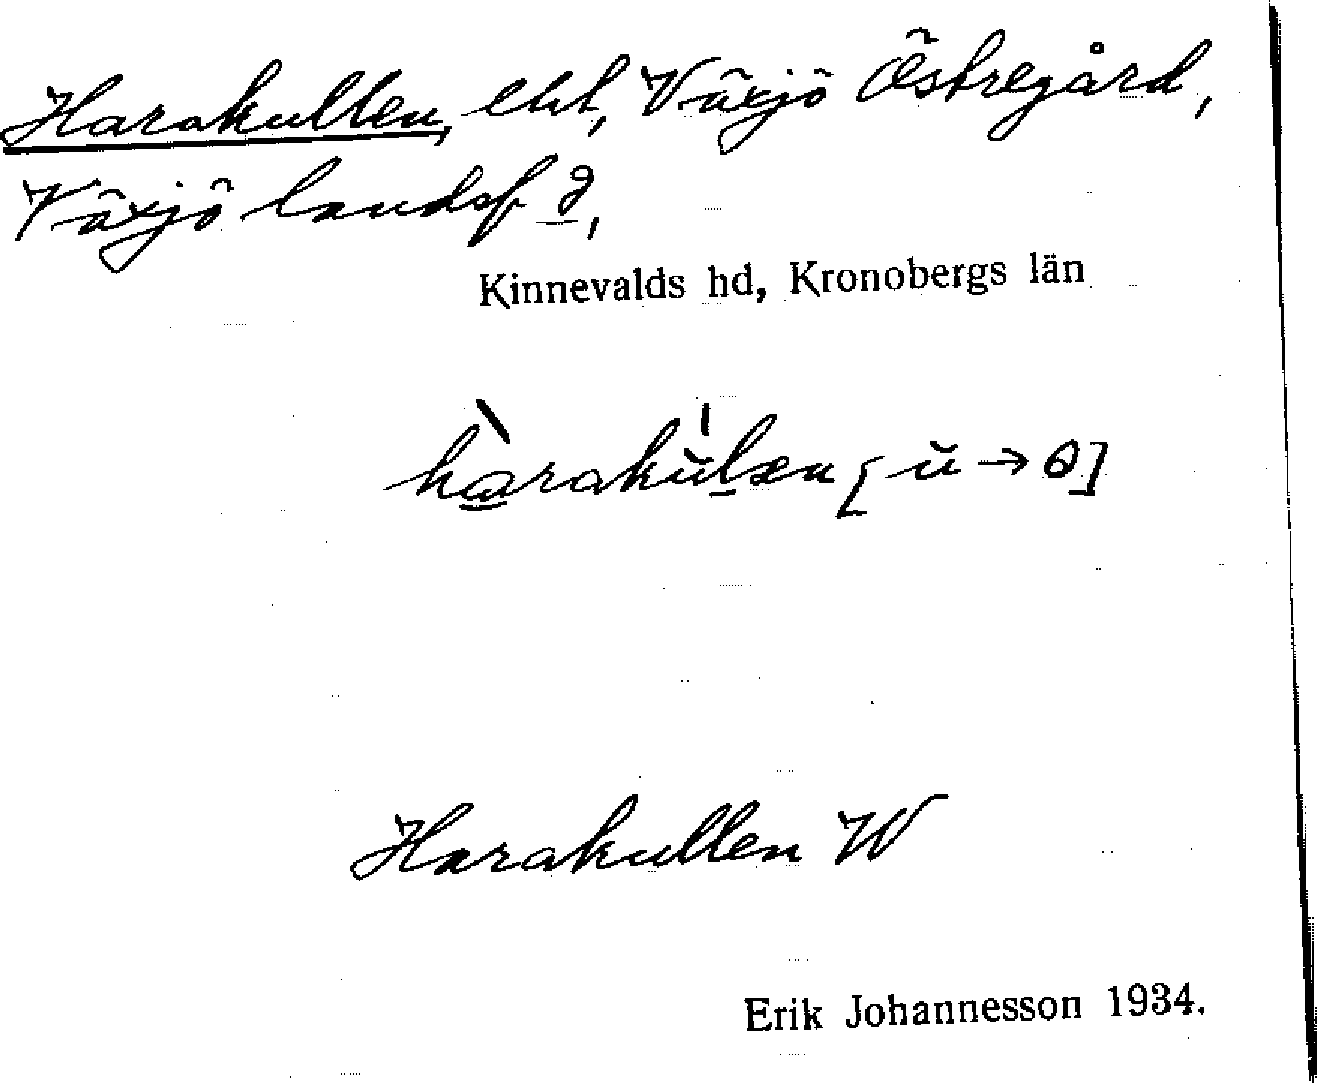 Harakullen, ekt, Växjö Östregård,
Växjö landsf d,
Kinnevalds hd, Kronobergs län
harakŭlæn [ŭ → ɵ]
Harakullen W
Erik Johannesson 1934.